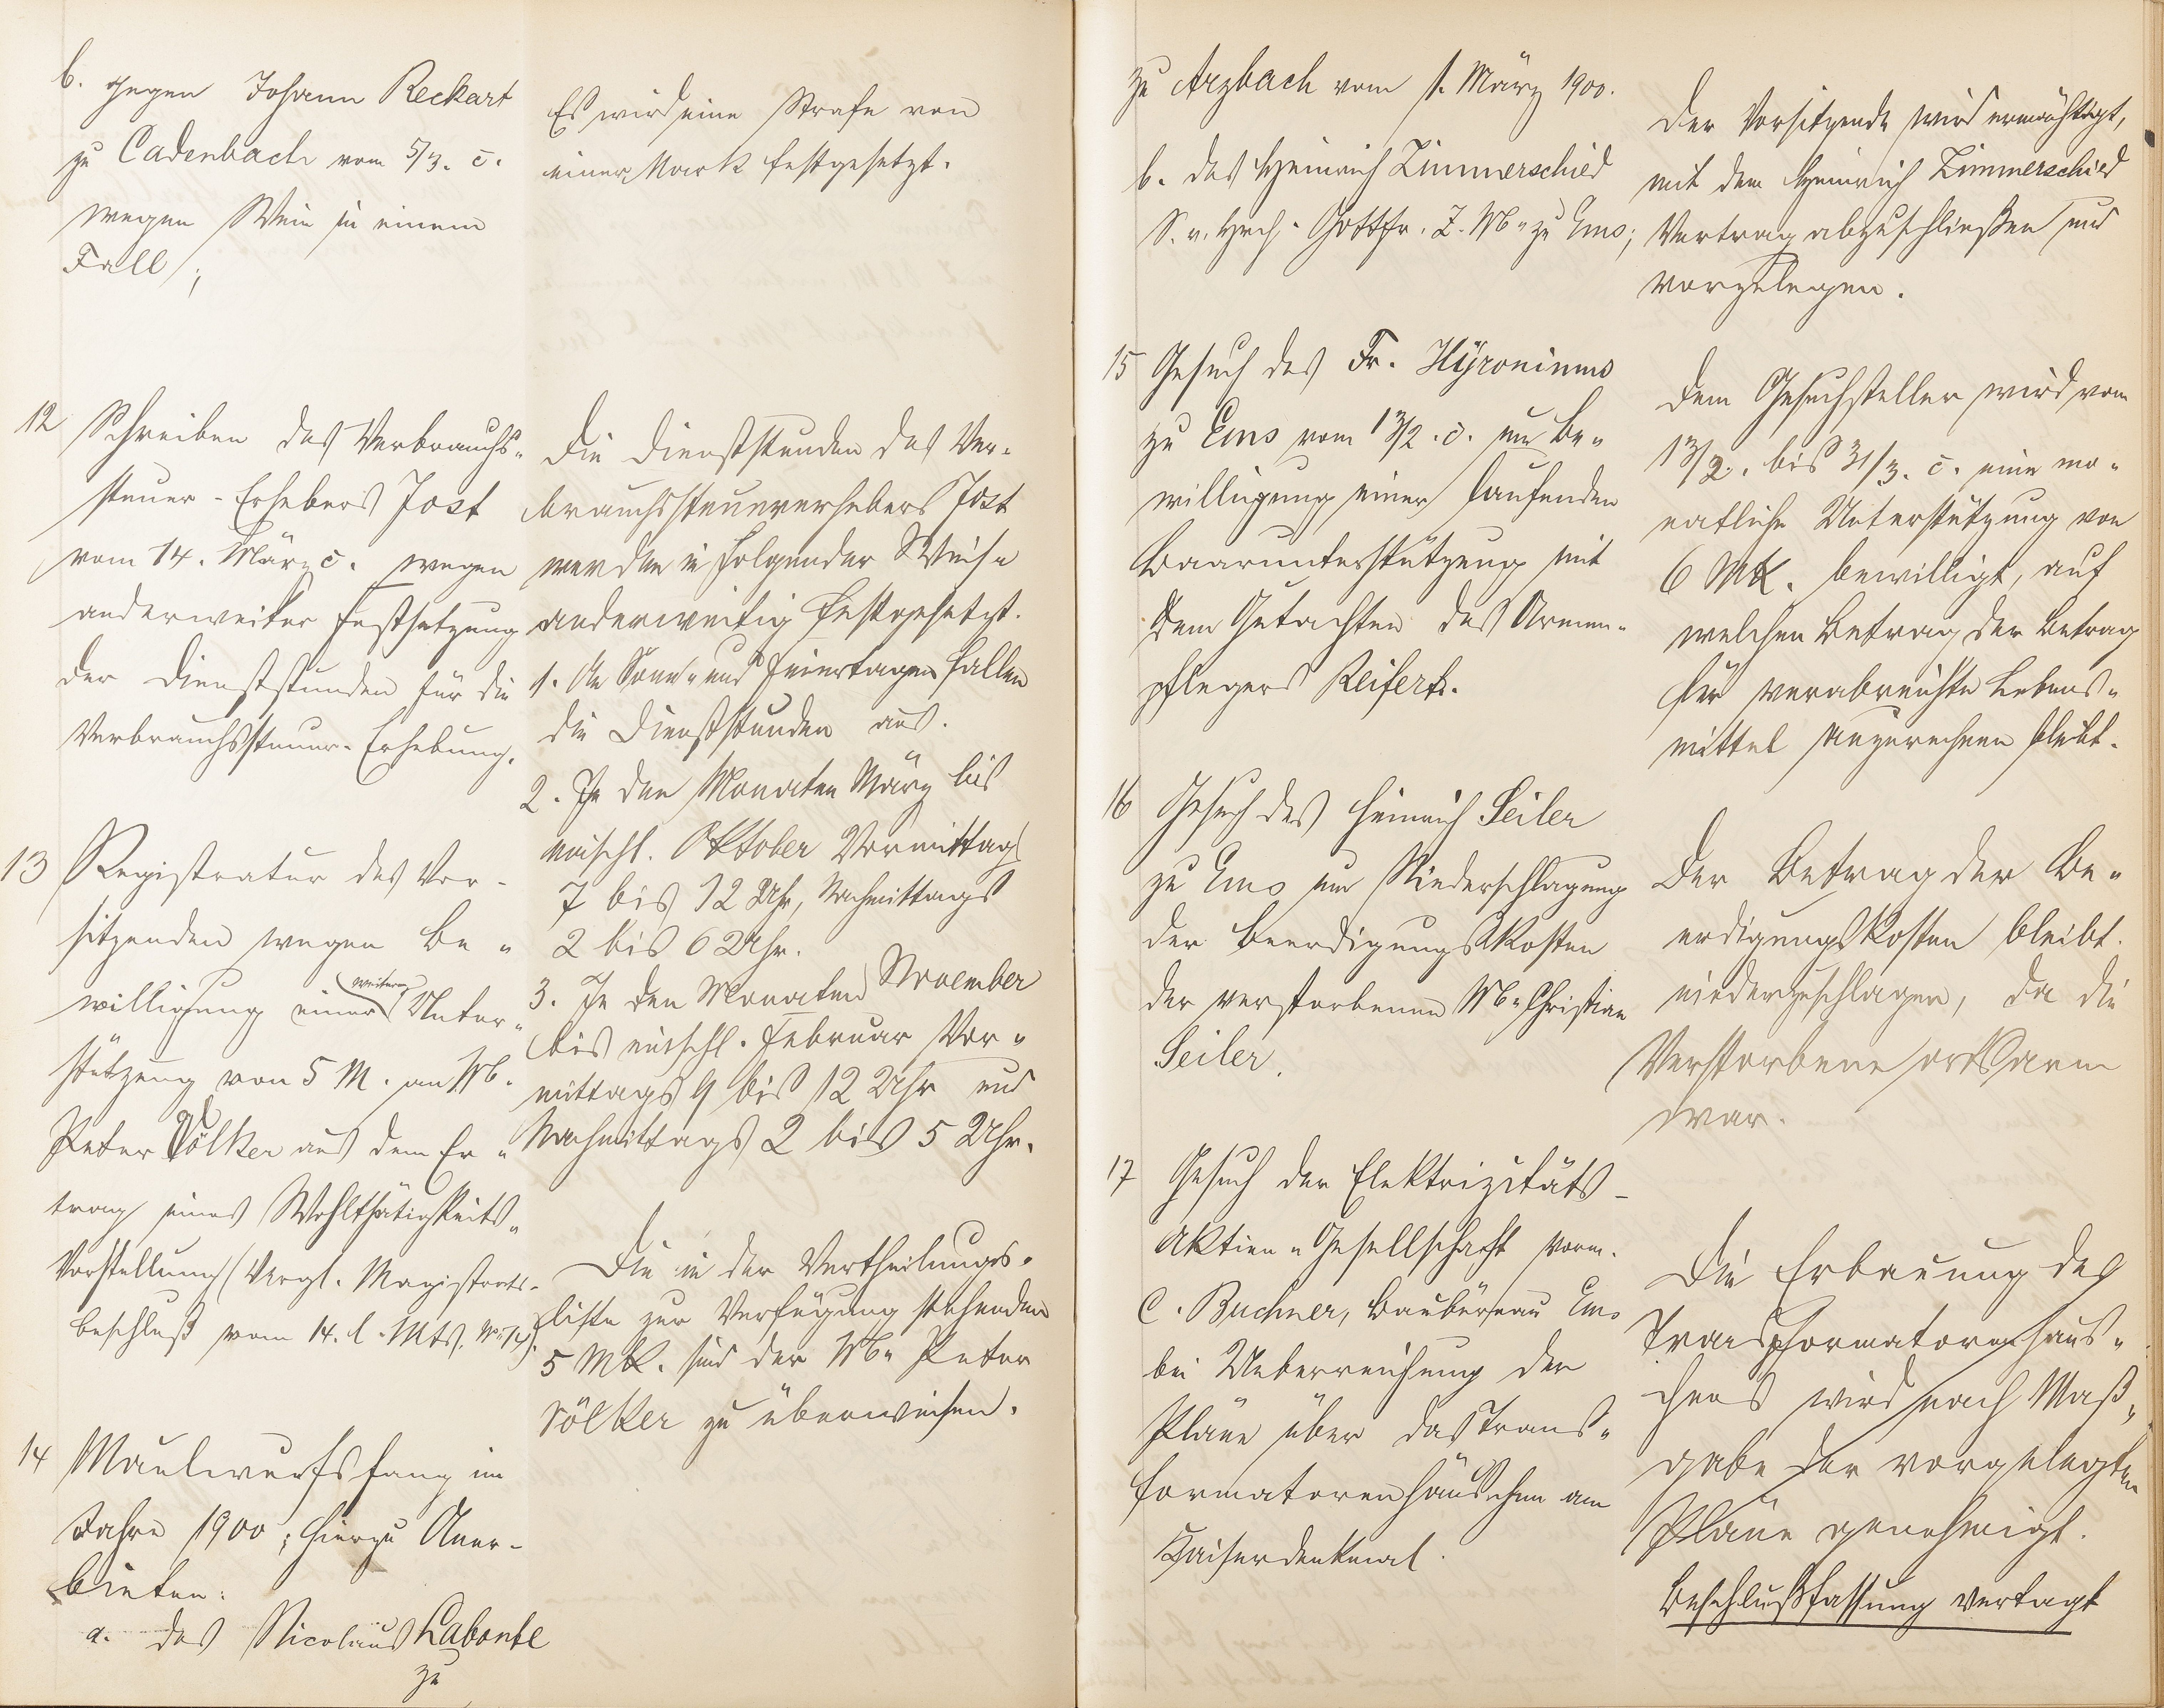 b. gegen Johann Reckart
zu Cadenbach vom 5/3. c.
wegen Wein in einem
Fall;
Es wird eine Strafe von
einer Mark festgesetzt.
12 Schreiben des Verbrauchs-
steuer-Erhebers Jost
vom 14. März c. wegen
anderweiter Festsetzung
der Dienststunden für die
Verbrauchssteuer-Erhebung.
Die Dienststunden des Ver-
brauchssteuererhebers Jost
werden in folgender Weise
anderweitig festgesetzt.
1. An Sonn- und Feiertagen fallen
die Dienststunden aus.
2. In den Monaten März bis
einschl. Oktober Vormittags
7 bis 12 Uhr, Nachmittags
2 bis 6 Uhr.
3. In den Monaten November
bis einschl. Februar Vor-
mittags 9 bis 12 Uhr und
Nachmittags 2 bis 5 Uhr.
13 Registratur des Vor-
sitzenden wegen Be-
willigung einer weiteren Unter-
stützung von 5 M. an Wb.
Peter Völker aus dem Er-
trag eines Wohlthätigkeits-
Vorstellung (Vergl. Magistrats-
beschluß vom 14. l. Mts. No 14).
Die in der Vertheilungs-
liste zur Verfügung stehenden
5 Mk. sind der Wb. Peter
Völker zu überweisen.
14 Maulwurfsfang im
Jahre 1900; hierzu Aner-
bieten:
a. des Nicolaus Labonte
zu
zu Arzbach vom 1. März 1900.
b. des Heinrich Zimmerschied
S. v. Hrch. Gottfr. Z. Wb. zu Ems;
Der Vorsitzende wird ermächtigt,
mit dem Heinrich Zimmerschied
Vertrag abzuschließen und
vorzulegen.
15 Gesuch des Fr. Hÿronimus
zu Ems vom 13/2. c. um Be-
willigung einer laufenden
Baarunterstützung mit
dem Gutachten des Armen-
pflegers Reifert.
Dem Gesuchsteller wird vom
13/2. bis 31/3. c. eine mo-
natliche Unterstützung von
6 Mk. bewilligt, auf
welchen Betrag der Betrag
für verabreichte Lebens-
mittel anzurechnen bleibt.
16 Gesuch des Heinrich Seiler
zu Ems um Niederschlagung
der Beerdigungskosten
der verstorbenen Wb. Christian
Seiler.
Der Betrag der Be-
erdigungskosten bleibt
niederzuschlagen, da die
Verstorbene ortsarm
war.
17 Gesuch der Elektrizitäts-
Aktien-Gesellschaft vorm.
C. Buchner, Baubüreau Ems
bei Ueberreichung der
Pläne über das Trans-
formatorenhäuschen am
Kaiserdenkmal.
Die Erbauung des
Transformatorenhäus-
chens wird nach Maß-
gabe der vorgelegten
Pläne genehmigt.
Beschlußfassung vertagt